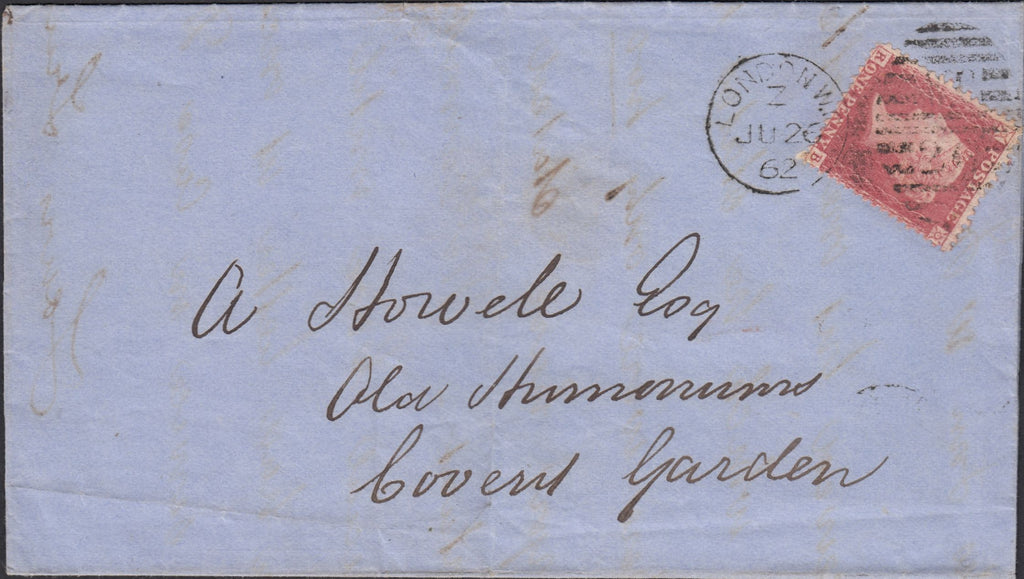 LONDON W.
7
JU 26
62
ONE PENNY
B
POSTAGE
A Howell Esq
Old Hummums
Covent Garden